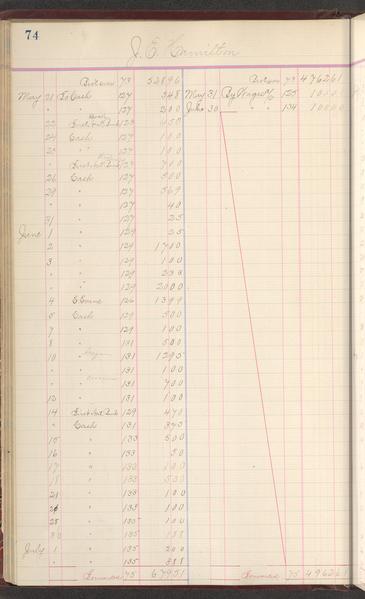 74
J. E. Hamilton
73 52896 73 476261
May 21 To Cash 127 348 May 31 By Wages 125 10000
" 127 200 June 30 " " 134 10000
22 First Nat Bank 123
24 Cash 127 100
25 " 127 100
First Nat Bank 700
26 Cash 127 500
29 " 127 569
" 127 40
31 " 127 25
June 1 " 129 25
2 " 129 1700
3 " 129 100
" 129
" 129 2000
4 126 1399
5 Cash 129 500
7 " 129 100
8 " 131 500
10 " 131 1295
" 131 100
" 131 700
12 " 131 100
14 First Nat Bank 129 470
Cash 131
15 " 133 500
16 " 133 50
17 " 133 100
18 " 133
21 " 133 100
" 133 100
28 " 135 100
30 " 135
July 1 " 135 200
" 135 888
Forward 75 67951 Forward 75 496261